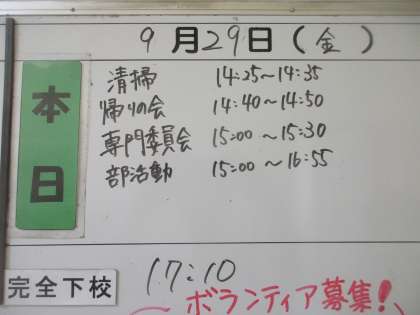 9月29日(金)
本日
清掃 14:25~14:35
帰りの会 14:40~14:50
専門委員会 15:00~15:30
部活動 15:00~16:55
完全下校 17:10
ボランティア募集!